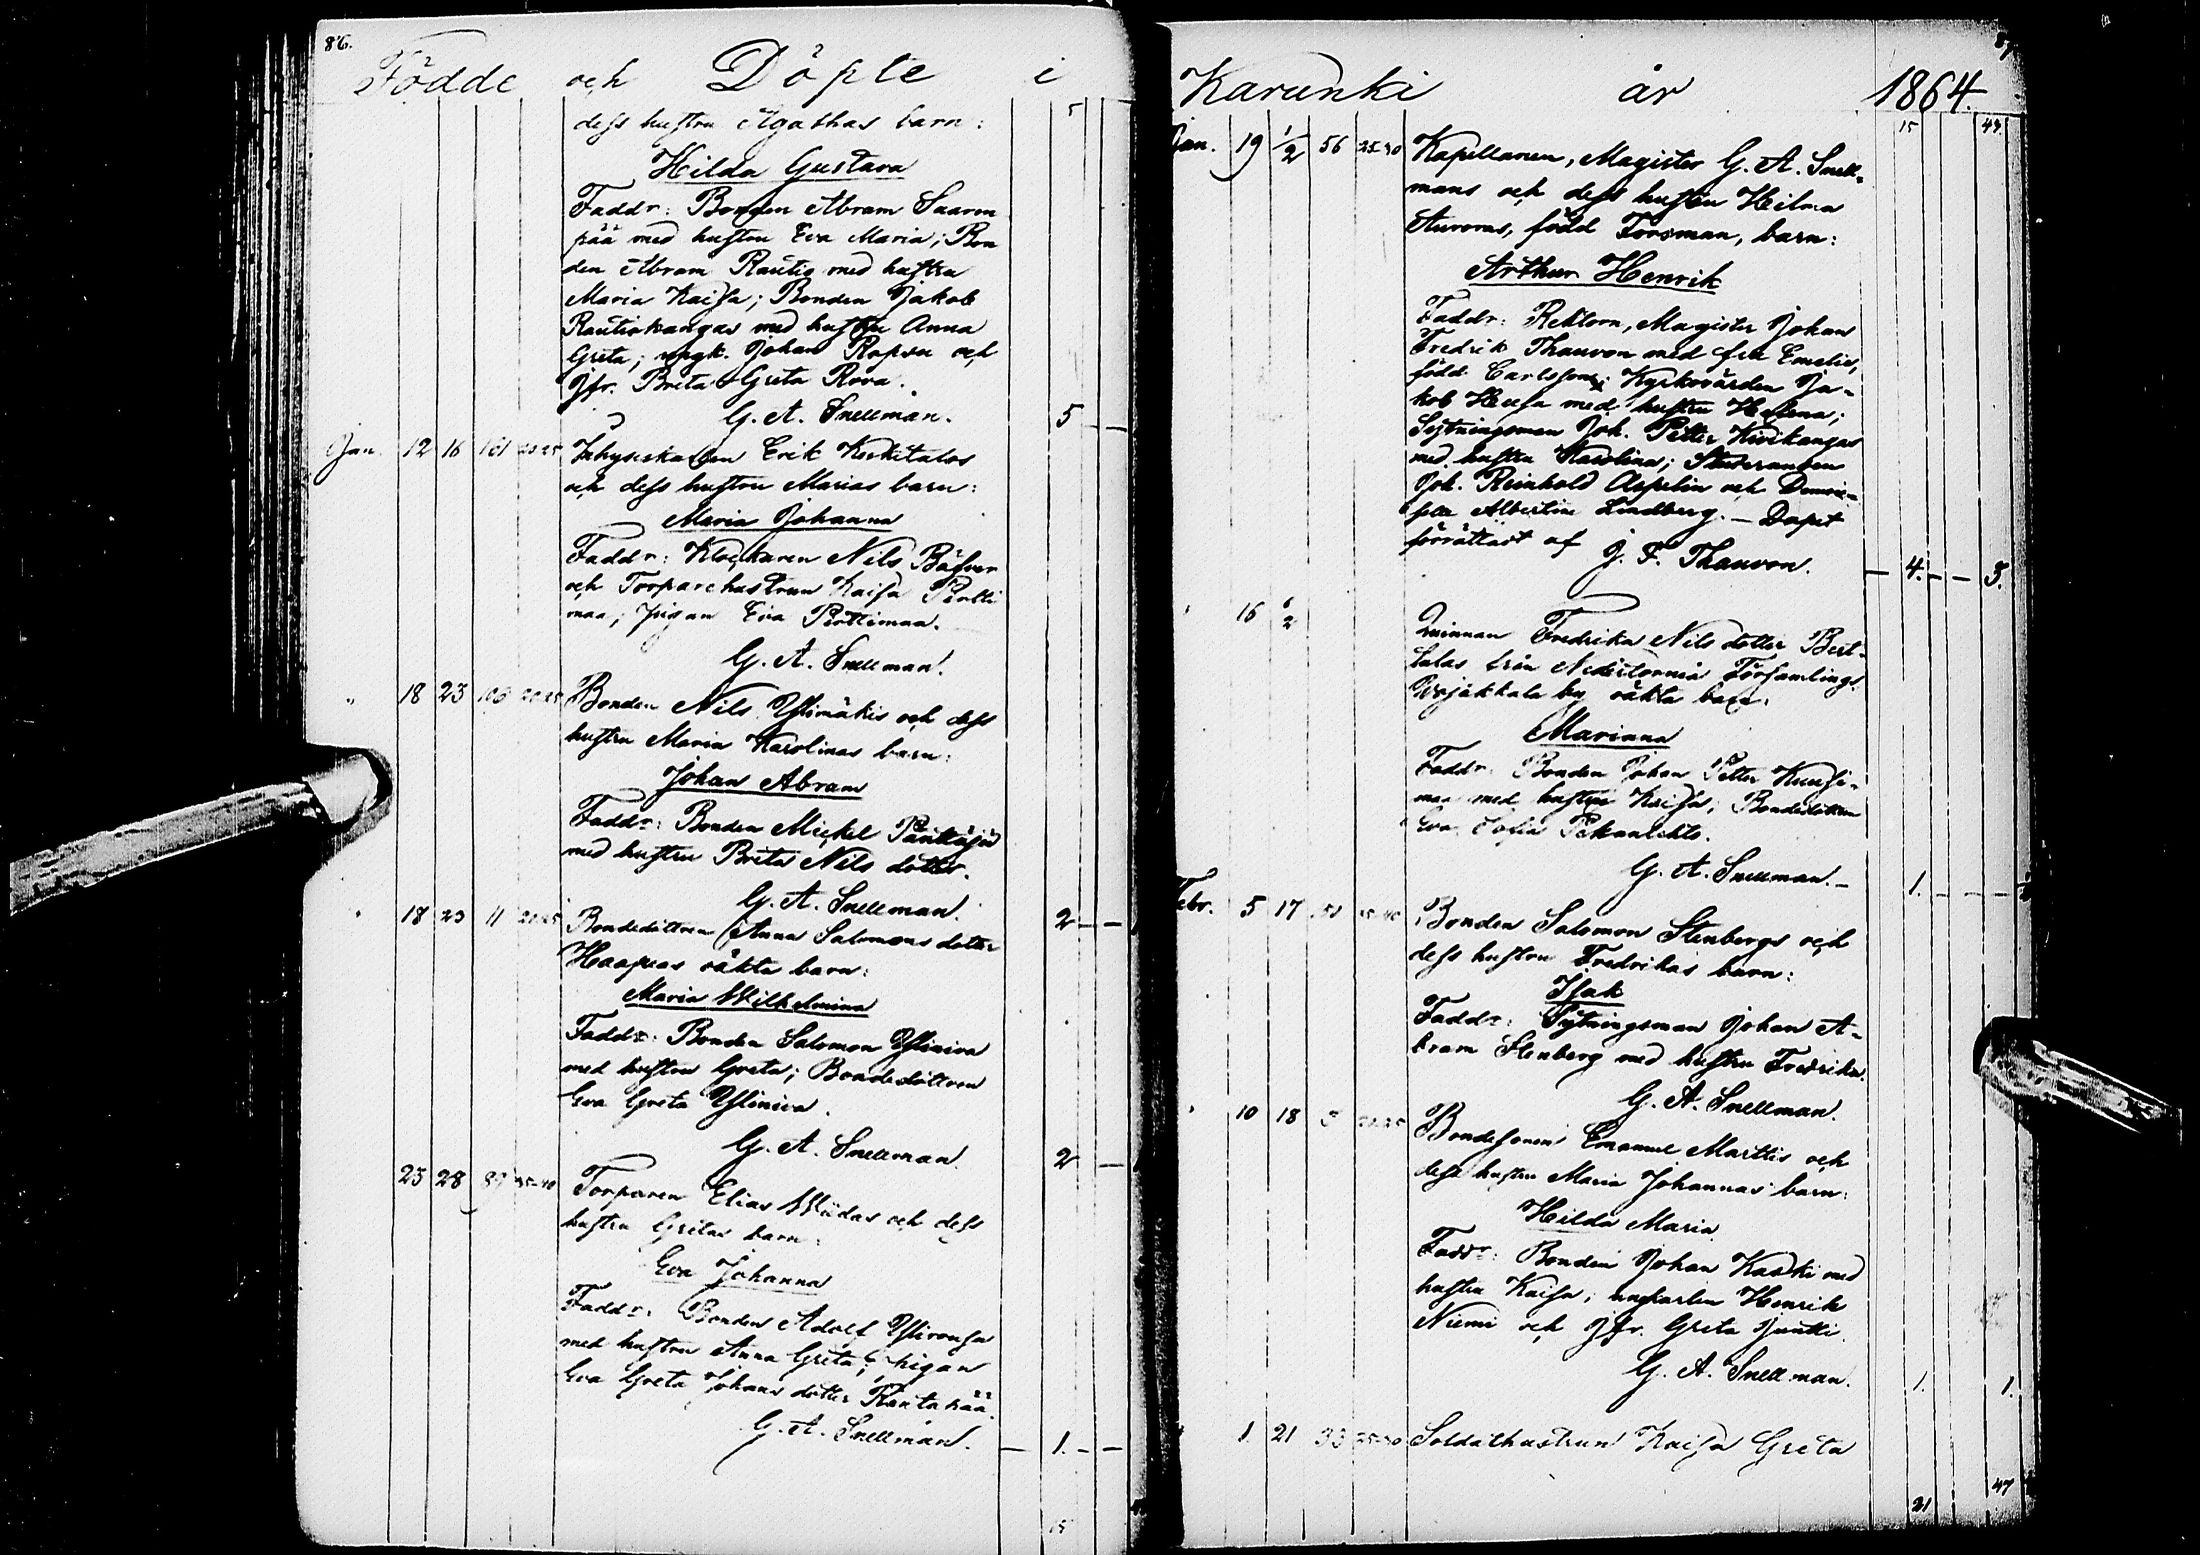 86.
Födde och Döpte i
dess hustru Agathas barn:
5
Hilda Gustava
Faddr: Bonden Abram Saaren
pää med hustru Eva Maria; Bon
den Abram Rautio med hustru
Maria Kaisa; Bonden Jakob
Rautiokangas med hustru Anna
Greta; ungk. Johan Rapsu och
Jfr. Brita Greta Rova.
G. A. Snellman.
5
Jan. 12 16 101 20 25
Inhyseskarlen Erik Keskitalos
och dess hustru Marias barn:
Maria Johanna
Faddr: Klockaren Nils Bäfver
och Torparehustrun Kaisa Perttu
maa; Pigan Eva Perttimaa.
G. A. Snellman.
" 18 23 106 20 25
Bonden Nils Ylimäkis och dess
hustru Maria Karolinas barn:
Johan Abram
Faddr: Bonden Mickel
med hustru Brita Nils dotter.
G. A. Snellman.
2
18 23 11 20 25
Bondedottren Anna Salomons dotter
Haapas oäkta barn:
Maria Wilhelmina
Faddr: Bonden Salomon Yliniva
med hustru Greta; Bondedottren
Eva Greta Yliniva.
G. A. Snellman.
2
23 28 89 35-40
Torparen Elias Wiidas och dess
hustru Gretas barn:
Eva Johanna
Faddr: Bonden Adolf
med hustru Anna Greta; Pigan
Eva Greta Johans dotter Rautapää.
G. A. Snellman.
1.
15
87
Karunki år 1864.
15 44.
Jan. 19 1/2 56 25-30
Kapellanen, Magister G. A. Snell-
mans och dess hustru Hilma
Auroras, född Forsman, barn:
Arthur Henrik
Faddr: Rektorn, Magister Johan
Fredrik Thauvon med fru Emelie,
född Carlsson; Kyrkovärden Ja-
kob Heusa med hustru Helena;
Sytningsman Joh. Petter Kivikangas
med hustru Karolina; Studeranden
Joh. Reinhold Aspelin och Demoi-
selle Albertine Lindberg. — Dopet
förrättadt af J. F. Thauvon.
4. 3.
16 6/2
Qvinnan Fredrika Nils dotter
från Nedertorneå Församlings
Wojakkala by oäkta barn:
Marianna
Faddr: Bonden Johan Petter Kuusi-
maa med hustru Kaisa; Bondedottren
Eva Sofia Pekanlehto.
G. A. Snellman.
1.
Febr. 5 17
Bonden Salomon Stenbergs och
dess hustru Fredrikas barn:
Isak
Faddr: Sytningsman Johan A-
bram Stenberg med hustru Fredrika.
G. A. Snellman.
10 18 3
Bondesonen Emanuel Marttis och
dess hustru Maria Johannas barn:
Hilda Maria
Faddr: Bonden Johan Kaski med
hustru Kaisa; ungkarlen Henrik
Niemi och Jfr. Greta Juntti.
G. A. Snellman.
1. 1.
1. 21 33 25-30 Soldathustrun Kaisa Greta
21 47